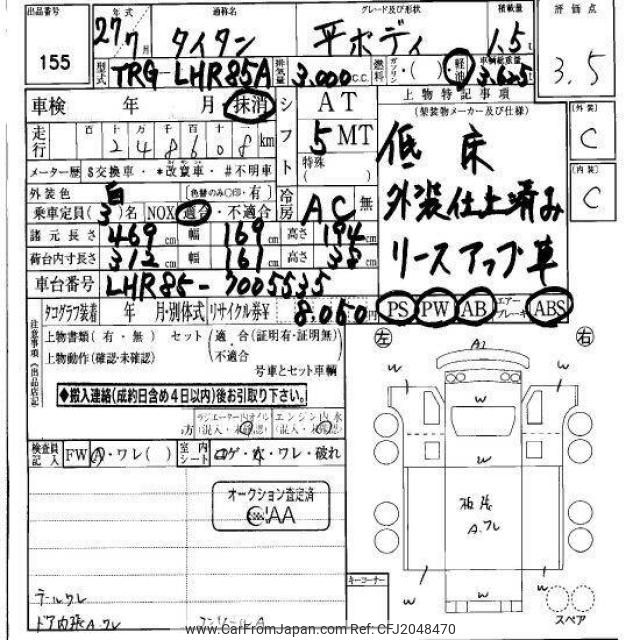 出品番号 155
年式 27 7月
通称名 タイタン
グレード及び形状 平ボディ
積載量 1.5t
評価点 3.5
型式 TRG-LHR85A
排気量 3,000 C.C.
燃料 ガソリン・( ) 軽油
車輌総重量 3.625
車検 年 月 抹消
シフト AT 5 MT 特殊( )
走行 百 十 万 千 百 十 2 4 8 6 0 8 km
メーター歴 S交換車・*改竄車・#不明車
上物特記事項
(架装物メーカー及び仕様)
低床
外装仕上済み
リースアップ車
(外装) C
(内装) C
外装色 白 (色替のみ○印・有)
冷房 AC 無
乗車定員(3)名 NOX 適合・不適合
諸元長さ 469 cm 幅 169 cm 高さ 194 cm
荷台内寸長さ 312 cm 幅 161 cm 高さ 38 cm
車台番号 LHR85-7005535
タコグラフ装着 年 月・別体式 リサイクル券¥ 8,060 円
PS PW AB エアーブレーキ ABS
注意事項(出品店記入)
上物書類(有・無) セット (適合(証明有・証明無)
上物動作(確認・未確認) ・不適合
号車とセット車輌
◆搬入連絡(成約日含め4日以内)後お引取り下さい。
ラジエーター内オイル エンジン内水
(混入・未確認) (混入・未確認)
検査員記入 FW A・ワレ( ) 室内シート コゲ・穴・ワレ・破れ
オークション査定済
CIAA
左 右
A2
W W
W
W
W W
W
板張
A.ワレ
テールワレ
ドア内張A.ワレ
キーコーナー
スペア
www.CarFromJapan.com Ref: CFJ2048470